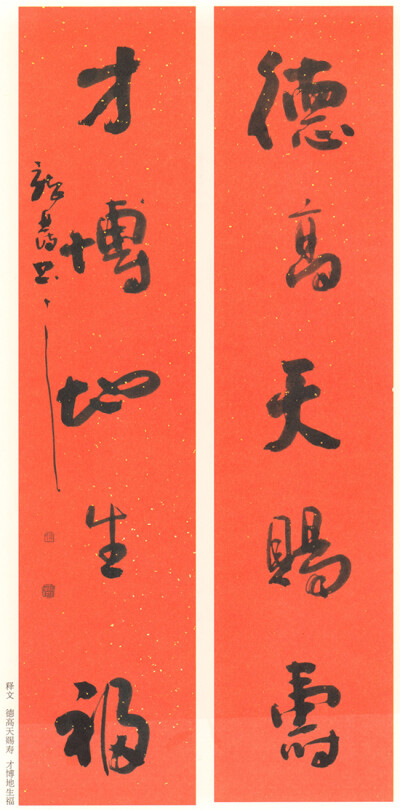 德高天賜壽
才博地生福
释文 德高天赐寿 才博地生福